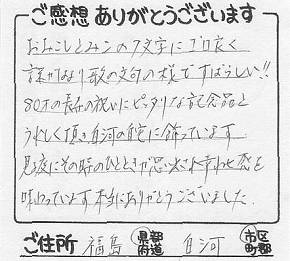 ご感想 ありがとうございます
おみことみンの7文字にゴロ良く
訳があり歌の文句の様ですばらしい!!
80才の長寿の祝いにピッタリな記念品と
うれしく頂き白河の自宅に飾っています
見る度にその時のひとときが思い出され幸わせ感を
味わっています本当にありがとうございました。
ご住所 福島 都道府県 白河 市区町郡